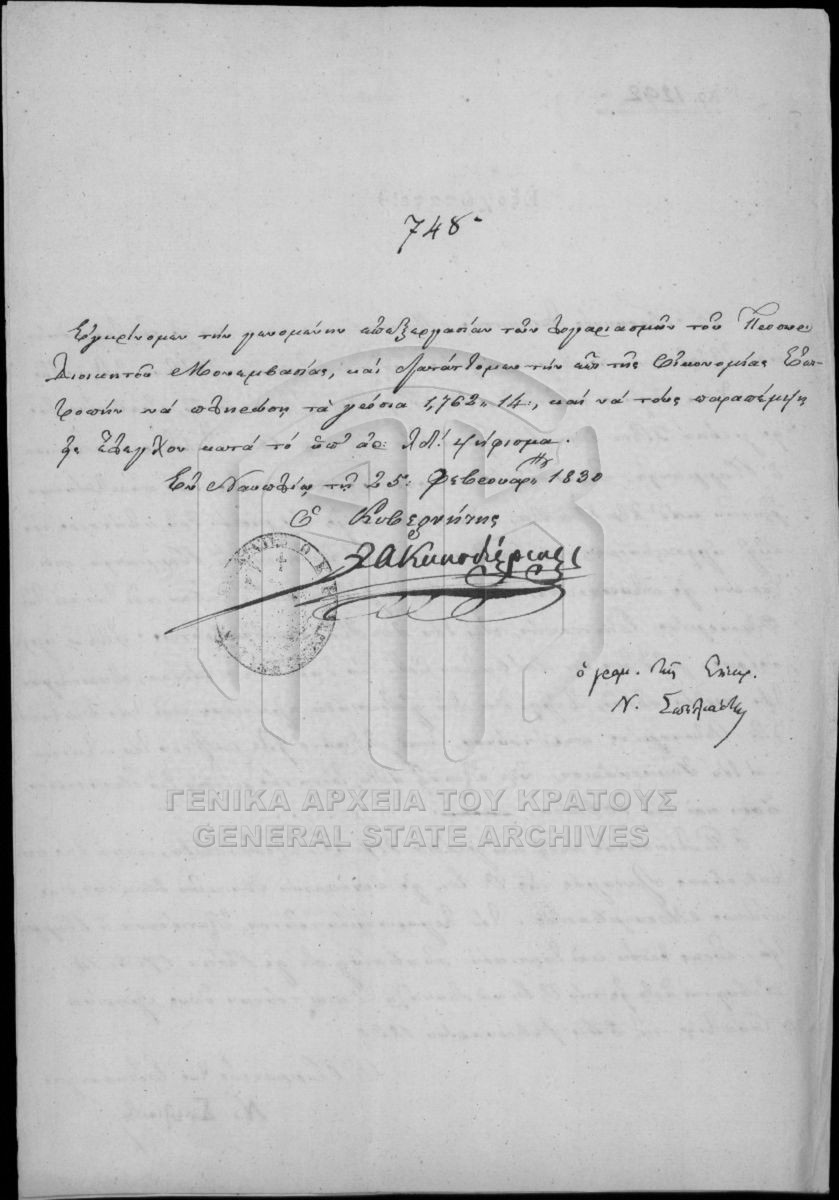 748-
Ἐγκρίνομεν τὴν γενομένην ἐπεξεργασίαν τῶν λογαριασμῶν τοῦ Προσωρ:
Διοικητοῦ Μονεμβασίας, καὶ διατάττομεν τὴν ἐπὶ τῆς Οἰκονομίας Ἐπι-
τροπὴν νὰ πληρώσῃ τὰ γρόσια 1,762,,14:, καὶ νὰ τοὺς παραπέμψῃ
εἰς ἔλεγχον κατὰ τὸ ὑπ' ἀρ: ψήφισμα.
Ἐν Ναυπλίῳ τῇ 25: Φεβρουαρ: 1830
Ὁ Κυβερνήτης
Ι Α Καποδίστριας
ὁ γραμ. τῆς Ἐπικρ.
Ν. Σπηλιάδης
ΓΕΝΙΚΑ ΑΡΧΕΙΑ ΤΟΥ ΚΡΑΤΟΥΣ
GENERAL STATE ARCHIVES